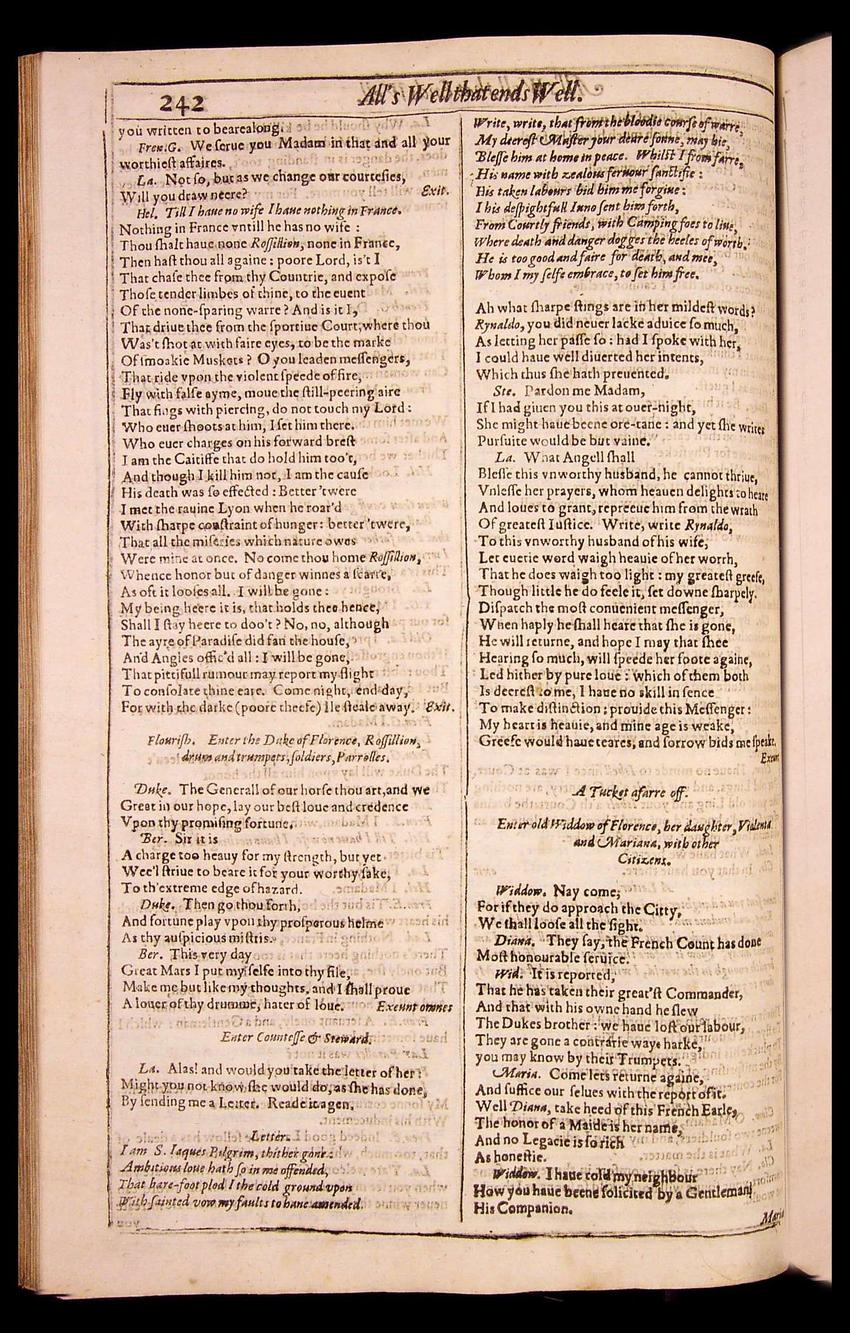 242
All's Well that ends Well.
you written to bearealong.
Fren.G. We serue you Madam in that and all your
worthiest affaires.
La. Not so, but as we change our courtesies,
Will you draw neere? Exit.
Hel. Till I haue no wife I haue nothing in France.
Nothing in France vntill he has no wife :
Thou shalt haue none Rossillion, none in France,
Then hast thou all againe : poore Lord, is't I
That chase thee from thy Countrie, and expose
Those tender limbes of thine, to the euent
Of the none-sparing warre ? And is it I,
That driue thee from the sportiue Court, where thou
Was't shot at with faire eyes, to be the marke
Of smoakie Muskets ? O you leaden messengers,
That ride vpon the violent speede of fire,
Fly with false ayme, moue the still-peering aire
That sings with piercing, do not touch my Lord :
Who euer shoots at him, I set him there.
Who euer charges on his forward brest
I am the Caitiffe that do hold him too't,
And though I kill him not, I am the cause
His death was so effected : Better 'twere
I met the rauine Lyon when he roar'd
With sharpe constraint of hunger : better 'twere,
That all the miseries which nature owes
Were mine at once. No come thou home Rossillion,
Whence honor but of danger winnes a scarre,
As oft it looses all. I will be gone :
My being heere it is, that holds thee hence,
Shall I stay heere to doo't ? No, no, although
The ayre of Paradise did fan the house,
And Angles offic'd all : I will be gone,
That pittifull rumour may report my flight
To consolate thine eare. Come night, end day,
For with the darke (poore theefe) Ile steale away. Exit.
Flourish. Enter the Duke of Florence, Rossillion,
drum and trumpets, soldiers, Parrolles.
Duke. The Generall of our horse thou art, and we
Great in our hope, lay our best loue and credence
Vpon thy promising fortune.
Ber. Sir it is
A charge too heauy for my strength, but yet
Wee'l striue to beare it for your worthy sake,
To th'extreme edge of hazard.
Duke. Then go thou forth,
And fortune play vpon thy prosperous helme
As thy auspicious mistris.
Ber. This very day
Great Mars I put my selfe into thy file,
Make me but like my thoughts, and I shall proue
A louer of thy drumme, hater of loue. Exeunt omnes
Enter Countesse & Steward.
La. Alas! and would you take the letter of her :
Might you not know she would do, as she has done,
By sending me a Letter. Reade it agen.
Letter.
I am S. Iaques Pilgrim, thither gone :
Ambitious loue hath so in me offended,
That bare-foot plod I the cold ground vpon
With sainted vow my faults to haue amended.
Write, write, that from the bloodie course of warre,
My deerest Master your deare sonne, may hie,
Blesse him at home in peace. Whilst I from farre,
His name with zealous feruour sanctifie :
His taken labours bid him me forgiue :
I his despightfull Iuno sent him forth,
From Courtly friends, with Camping foes to liue,
Where death and danger dogges the heeles of worth.
He is too good and faire for death, and mee,
Whom I my selfe embrace, to set him free.
Ah what sharpe stings are in her mildest words?
Rynaldo, you did neuer lacke aduice so much,
As letting her passe so : had I spoke with her,
I could haue well diuerted her intents,
Which thus she hath preuented.
Ste. Pardon me Madam,
If I had giuen you this at ouer-night,
She might haue beene ore-tane : and yet she writes
Pursuite would be but vaine.
La. What Angell shall
Blesse this vnworthy husband, he cannot thriue,
Vnlesse her prayers, whom heauen delights to heare
And loues to grant, repreeue him from the wrath
Of greatest Iustice. Write, write Rynaldo,
To this vnworthy husband of his wife,
Let euerie word waigh heauie of her worth,
That he does waigh too light : my greatest greefe,
Though little he do feele it, set downe sharpely.
Dispatch the most conuenient messenger,
When haply he shall heare that she is gone,
He will returne, and hope I may that shee
Hearing so much, will speede her foote againe,
Led hither by pure loue : which of them both
Is deerest to me, I haue no skill in sence
To make distinction : prouide this Messenger :
My heart is heauie, and mine age is weake,
Greefe would haue teares, and sorrow bids me speake.
Exeunt
A Tucket afarre off.
Enter old Widdow of Florence, her daughter, Violenta
and Mariana, with other
Citizens.
Widdow. Nay come,
For if they do approach the Citty,
We shall loose all the sight.
Diana. They say, the French Count has done
Most honourable seruice.
Wid. It is reported,
That he has taken their great'st Commander,
And that with his owne hand he slew
The Dukes brother : we haue lost our labour,
They are gone a contrarie way : harke,
you may know by their Trumpets.
Maria. Come lets returne againe,
And suffice our selues with the report of it.
Well Diana, take heed of this French Earle,
The honor of a Maide is her name,
And no Legacie is so rich
As honestie.
Widdow. I haue told my neighbour
How you haue beene solicited by a Gentleman
His Companion.
Maria